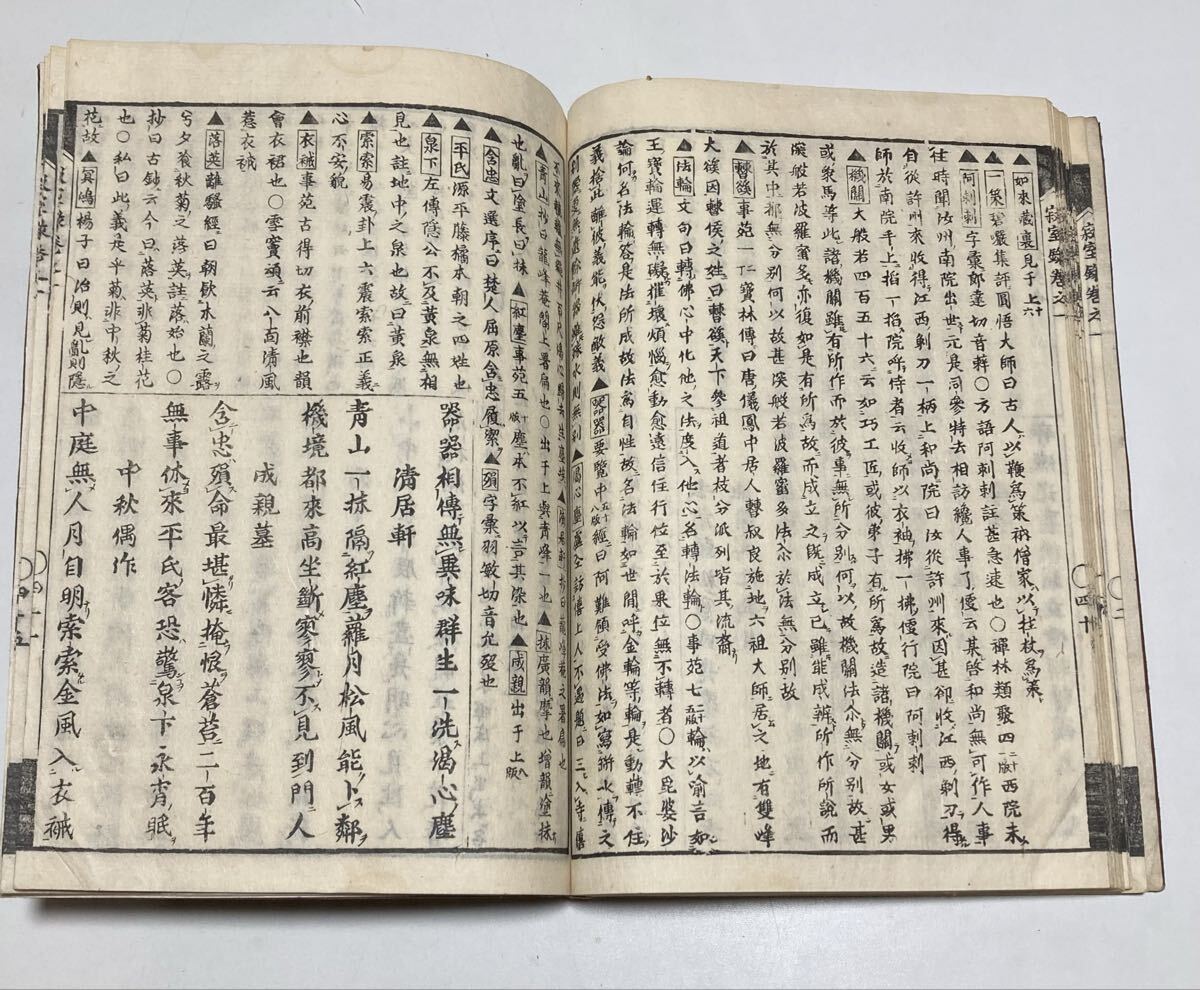 寂室録卷之一
▲如來藏裏見于上六
▲一策碧嚴集評圜悟大師曰古人以鞭爲策衲僧家以拄杖爲策
▲阿剌剌字彙郎達切音辢〇方語阿剌剌註甚急速也〇禪林類聚四西院未
住時聞汝州南院出世元是同參特去相訪纔人事了便云某啓和尚無可作人事
自從許州來收得江西剃刀一柄上和尚院曰汝從許州來因甚却收江西剃刀得
師於南院手上掐一掐院呼侍者云收師以衣袖拂一拂便行院曰阿剌剌
▲機關大般若四百五十六云如巧工匠或彼弟子有所爲故造諸機關或女或男
或象馬等此諸機關雖有所作而於彼事無所分別何以故機關法尒無分別故甚
深般若波羅蜜多亦復如是有所爲故而成立之既成立已雖能成辨所作所說而
於其中都無分別何以故甚深般若波羅蜜多法尒於法無分別故
事苑一寶林傳曰唐儀鳳中居人叔良施地六祖大師居之地有雙峰
大後因侯之姓曰天下參祖道者枝分派列皆其流裔
▲法輪文句曰轉佛心中化他之法度入他心名轉法輪〇事苑七輪以喻言如
王寶輪運轉無礙摧壞煩惱愈動愈遠信住行位至於果位無不轉者〇大毘婆沙
論何名法輪答是法所成故法爲自性故名法輪如世間呼金輪等輪是動轉不住
義捨此離彼義能伏怨敵義▲器器要覽中經曰阿難領受佛法如寫缾水傳之
▲青山抄曰龍峰菴閣上署扁也〇出于上與青峰一也▲抹廣韻摩也增韻塗抹
也亂曰塗長曰抹▲紅塵事苑五塵本不紅以言其深也▲成親出于上
▲含忠文選序曰楚人屈原含忠履潔▲殞字彙羽敏切音允歿也
▲平氏源平藤橘本朝之四姓也
▲泉下左傳隱公不及黃泉無相
見也註地中之泉也故曰黃泉
▲索索易震卦上六震索索正義
心不安貌
▲衣裓事苑古得切衣前襟也韻
會衣裾也〇雪竇頌云八面清風
惹衣裓
▲落英離騷經曰朝飮木蘭之露
兮夕飡秋菊之落英註落始也〇
抄曰古鈔云今曰落英非菊桂花
也〇私曰此義是乎菊非中秋之
花故▲冥鴻楊子曰治則見亂則隱
器器相傳無異味群生一洗渴心塵
清居軒
青山一抹隔紅塵蘿月松風能卜鄰
機境都來高坐斷寥寥不見到門人
成親墓
含忠殞命最堪憐掩恨蒼苔二百年
無事休來平氏客恐驚泉下永宵眠
中秋偶作
中庭無人月自明索索金風入衣裓